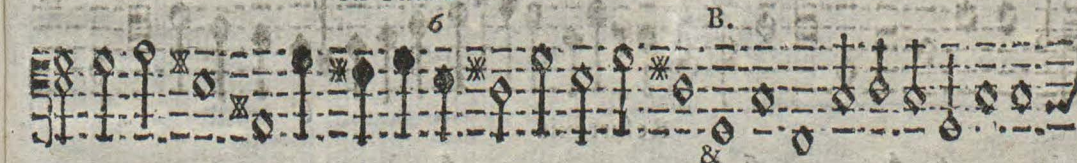 6 B.
&